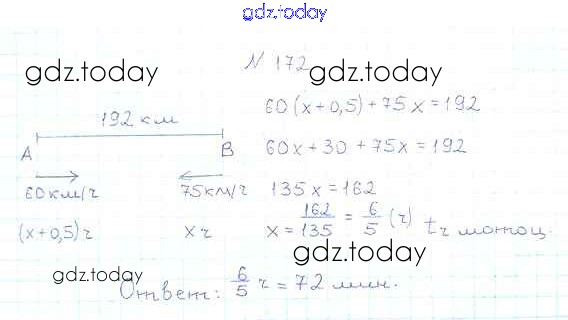 gdz.today
N 172
gdz.today
gdz.today
192 км
60(x+0,5)+75x=192
A
B
60x+30+75x=192
60км/ч
75км/ч
135x=162
(x+0,5)ч
x ч
x=162/135=6/5(ч) t ч мотоц.
gdz.today
gdz.today
Ответ: 6/5 ч = 72 мин.